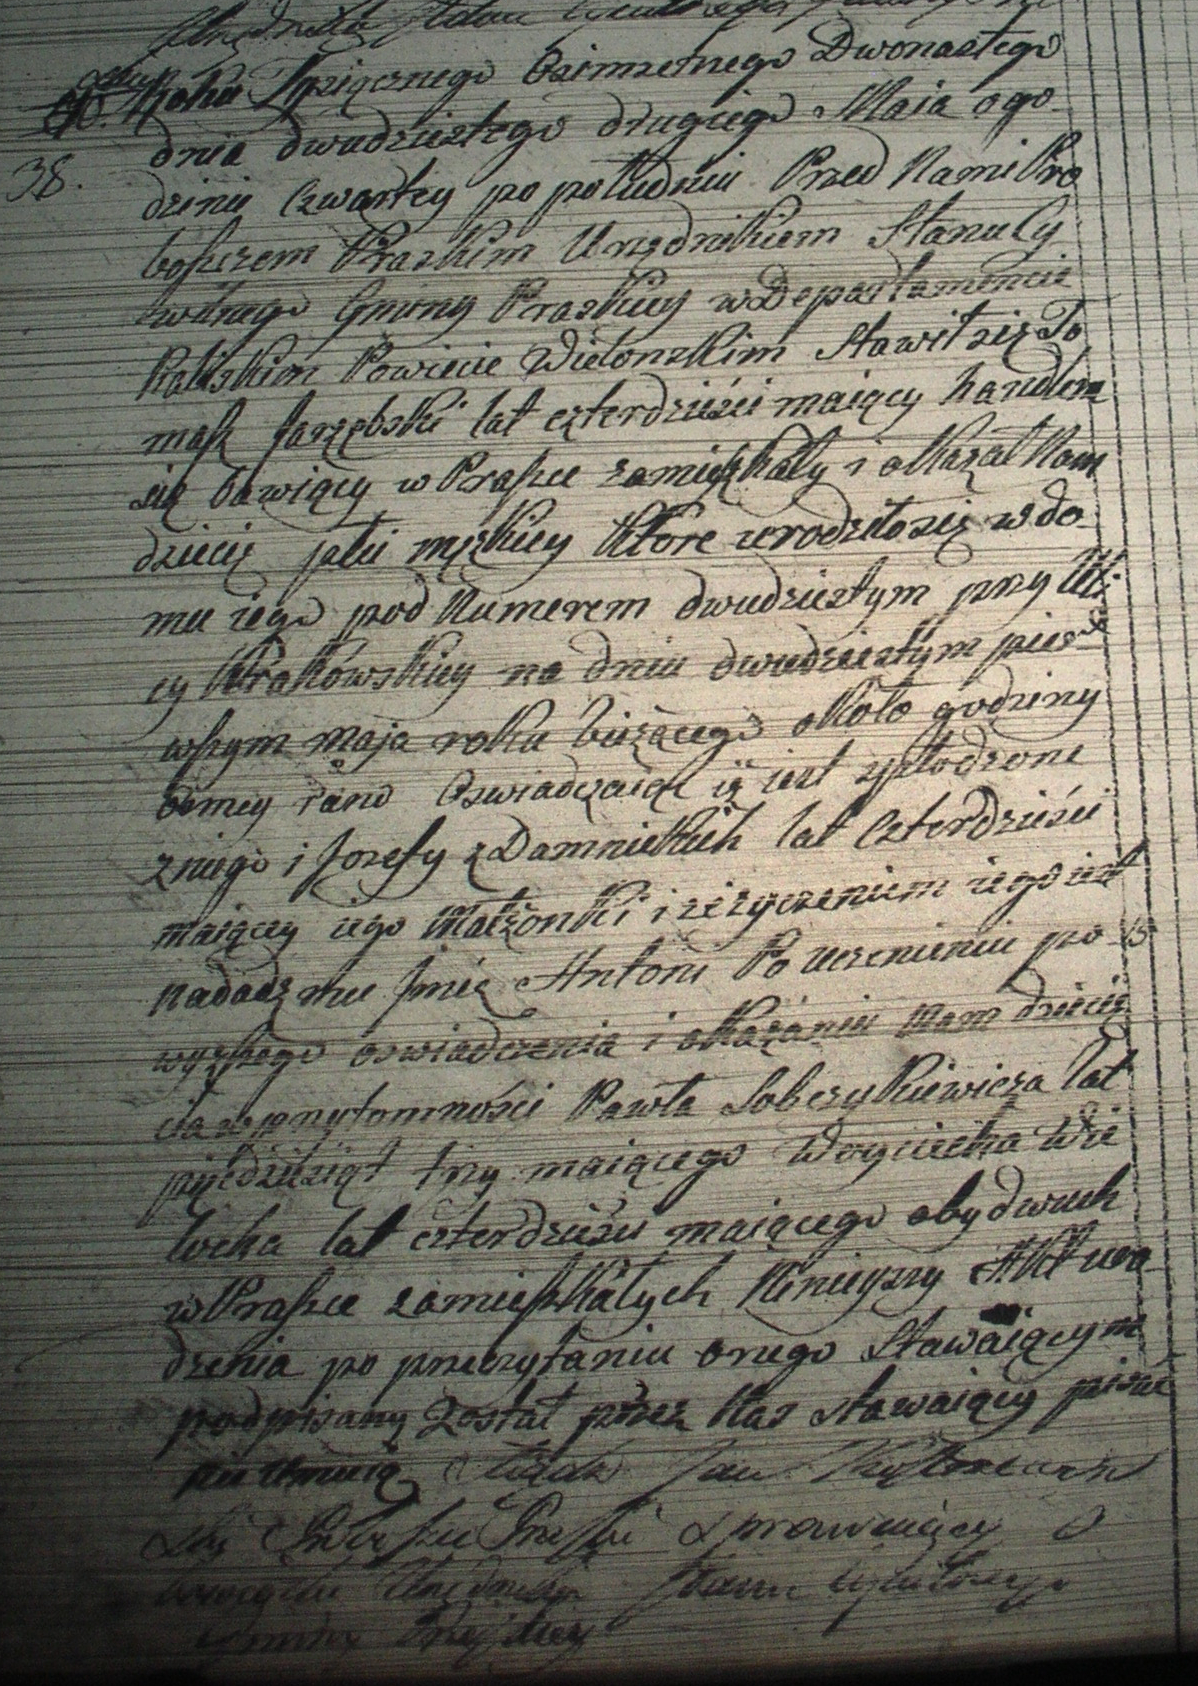 Urzędnika Stanu Cywilnego
Roku Tysiącznego Osimsetnego Dwonastego
38.
dnia dwudziestego drugiego Maia o go
dzinie Czwartey po południu Przed Nami Pro
boszczem Praskim Urzędnikiem Stanu Cy
wilnego Gminy Praskiey w Departamencie
Kaliskim Powiecie Wielonskim Stawił się To
masz Jarzębski lat czterdzieści maiący handlem
się bawiący w Praszce zamieszkały i okazał Nam
dziecię płci męzkiey które urodziło się w do
mu iego pod Numerem dwudziestym przy Uli
cy Krakowskiey na dniu dwudziestym pier
wszym Maja roku bieżącego około godziny
osmey rano Oswiadczaiąc iż iest spłodzone
z niego i Jozefy z Damnieckich lat Czterdzieści
maiącey iego Małżonki i że życzeniem iego iest
nadadz mu Jmię Antoni Po uczynieniu po
wyższego oswiadczenia i okazaniu Nam dziecię
cia w przytomności Pawła Sobczykiewicza lat
pięćdziesiąt trzy maiącego Woyciecha Wie
locha lat czterdzieści maiącego obydwuch
w Praszce zamieszkałych Ninieyszy Akt uro
dzenia po przeczytaniu onego Stawaiącym
podpisany został przez Nas stawaiący pisać
nie umieią Xiądz Jan
sprawuiący O
bowiązki Urzędnika Stanu Cywilnego
Gminy Praskiey